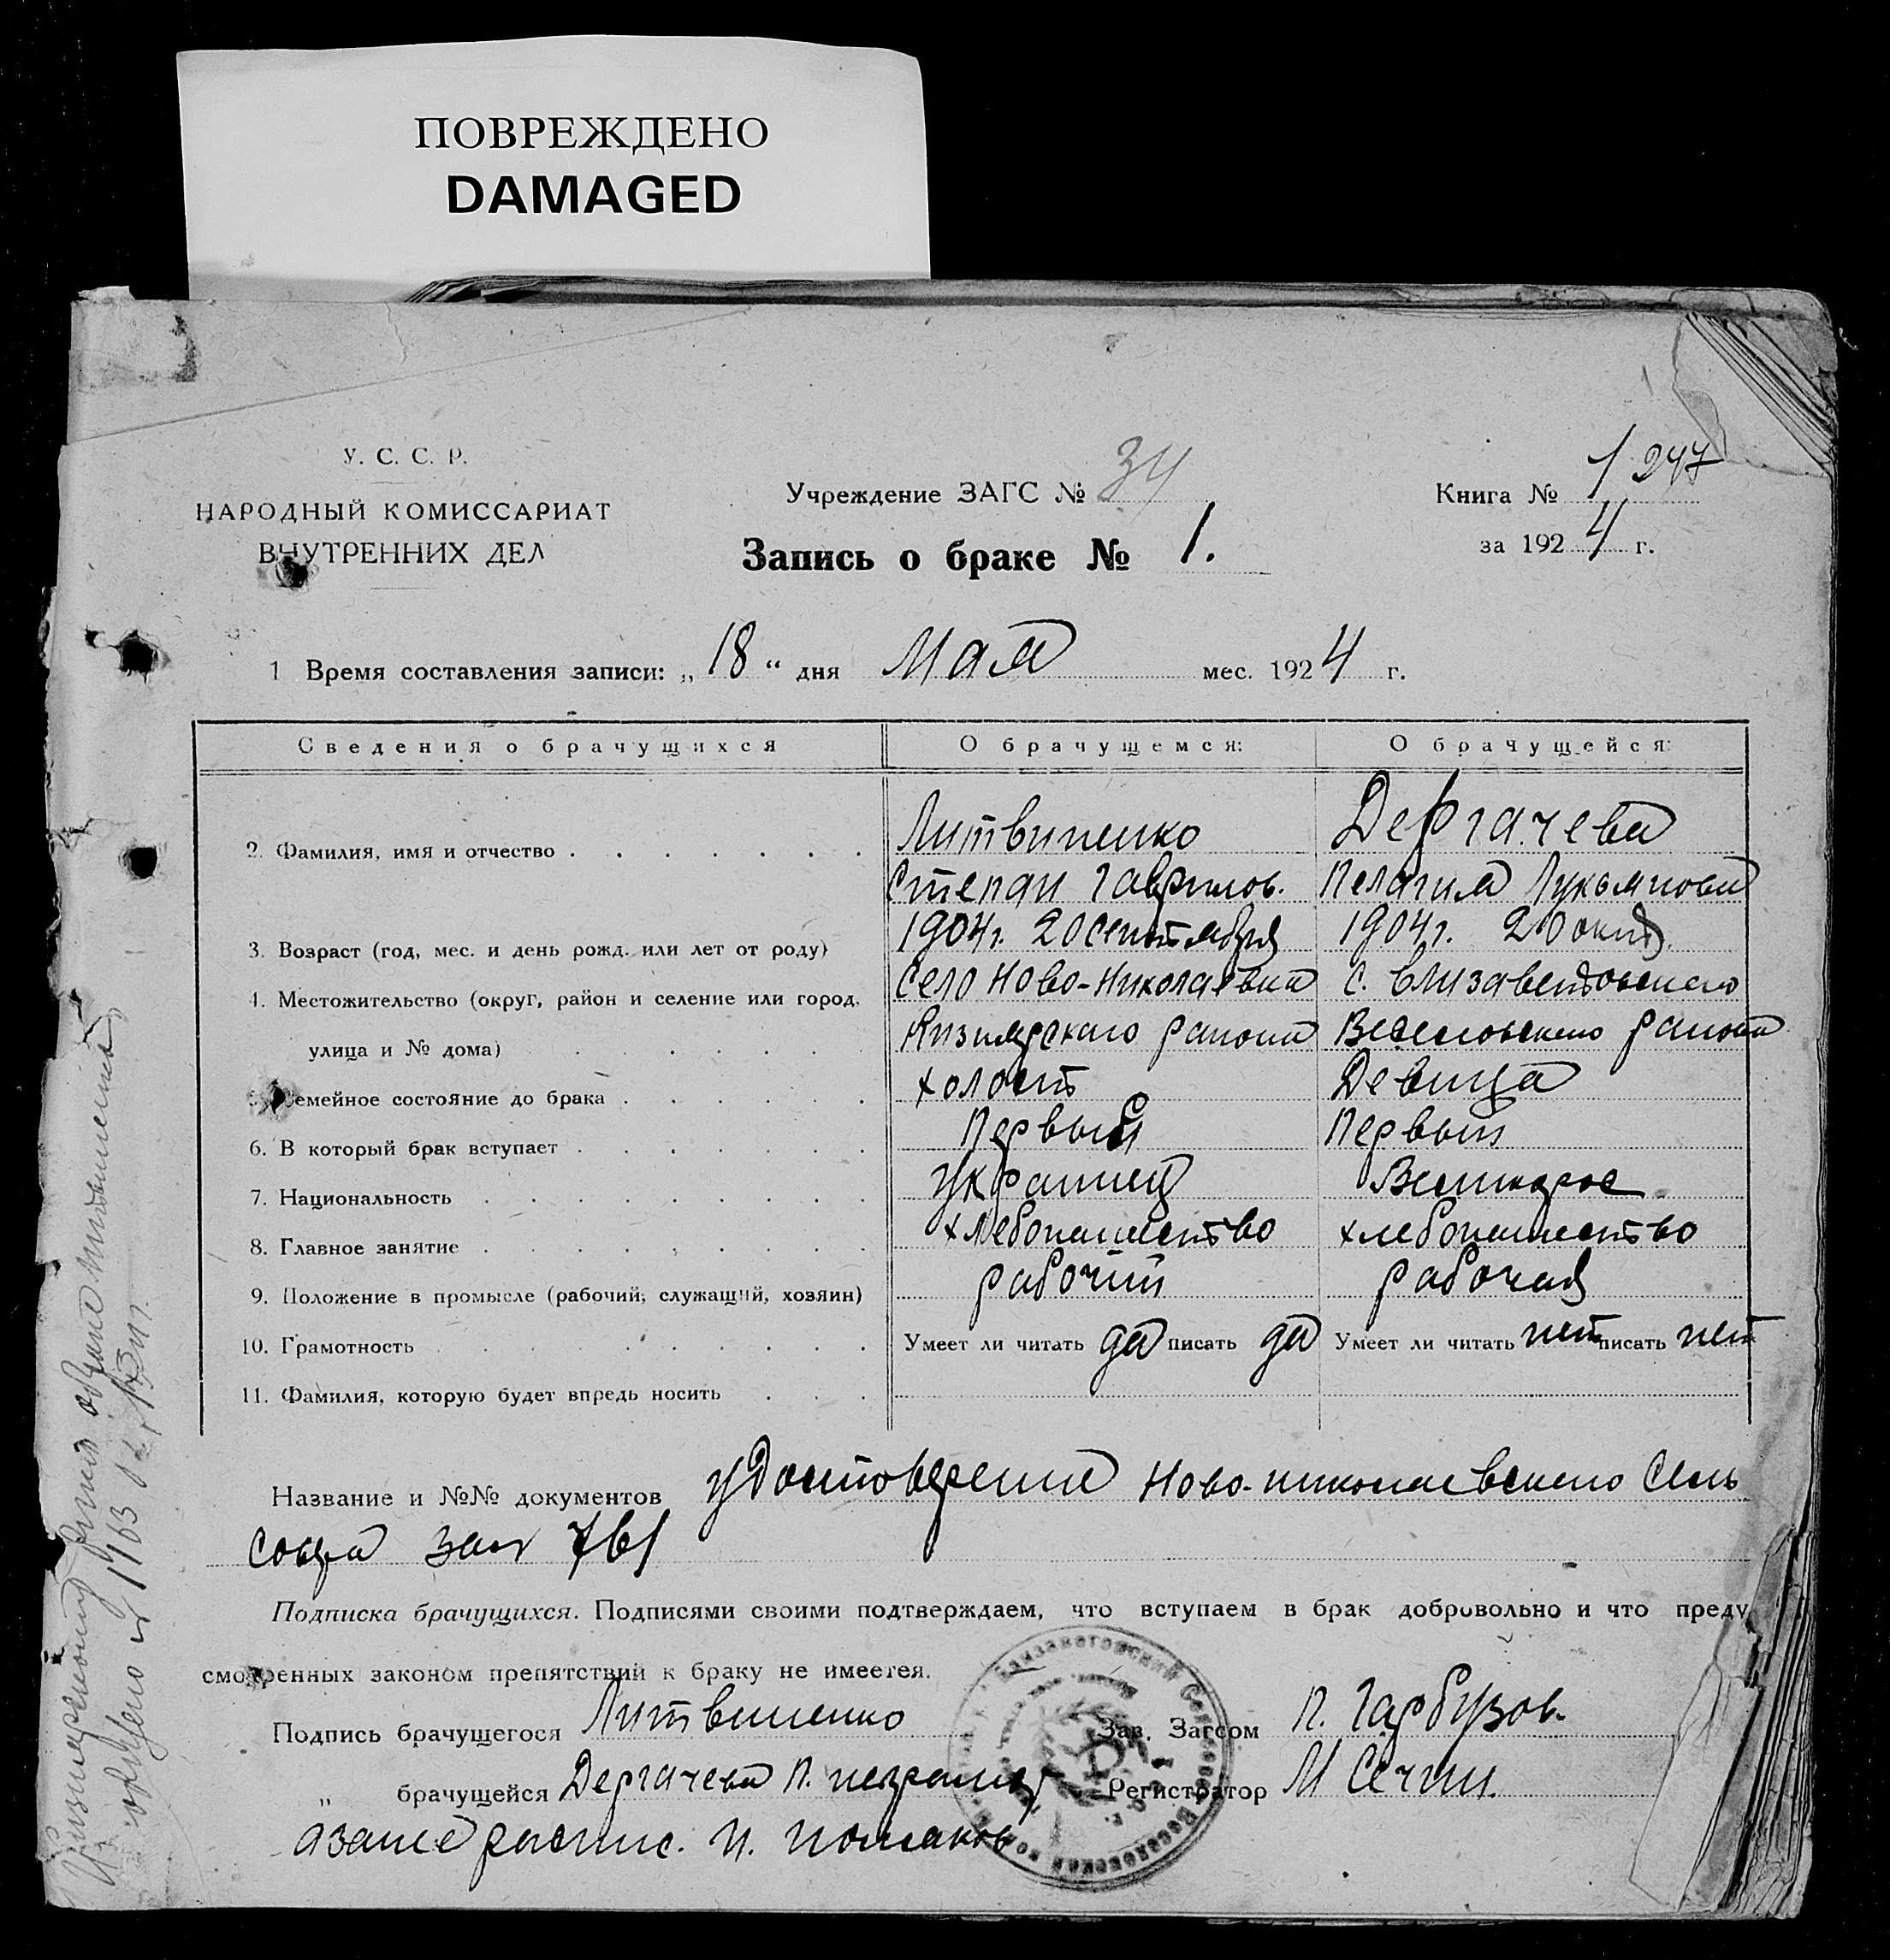 ПОВРЕЖДЕНО
DAMAGED
У. С. С. Р.
НАРОДНЫЙ КОМИССАРИАТ
ВНУТРЕННИХ ДЕЛ
Учреждение ЗАГС № 34
Запись о браке № 1.
Книга № 1 247
за 1924 г.
1 Время составления записи: „18“ дня Мая мес. 1924 г.
Сведения о брачущихся О брачущемся: О брачущейся:
2. Фамилия, имя и отчество Литвиненко Дергачева
Степан Гаврилов. Пелагия Лукьянова
3. Возраст (год, мес. и день рожд. или лет от роду) 1904г. 20 сентября 1904г. 20 окт.
4. Местожительство (округ, район и селение или город, Село Ново-Николаевка с. Елизаветовского
улица и № дома) района Веселовского района
5. Семейное состояние до брака холост Девица
6. В который брак вступает Первый Первый
7. Национальность Украинец Великорос
8. Главное занятие хлебопашество хлебопашество
9. Положение в промысле (рабочий, служащий, хозяин) рабочий рабочая
10. Грамотность Умеет ли читать да писать да Умеет ли читать нет писать нет
11. Фамилия, которую будет впредь носить
Название и №№ документов удостоверение Ново-николаевского Сель
совета за № 761
Подписка брачущихся. Подписями своими подтверждаем, что вступаем в брак добровольно и что преду
смотренных законом препятствий к браку не имеется.
Подпись брачущегося Литвиненко Зав. Загсом П. Гарбузов.
„ брачущейся Дергачева П. неграмот Регистратор М Сечин.
а за нее распис. И.